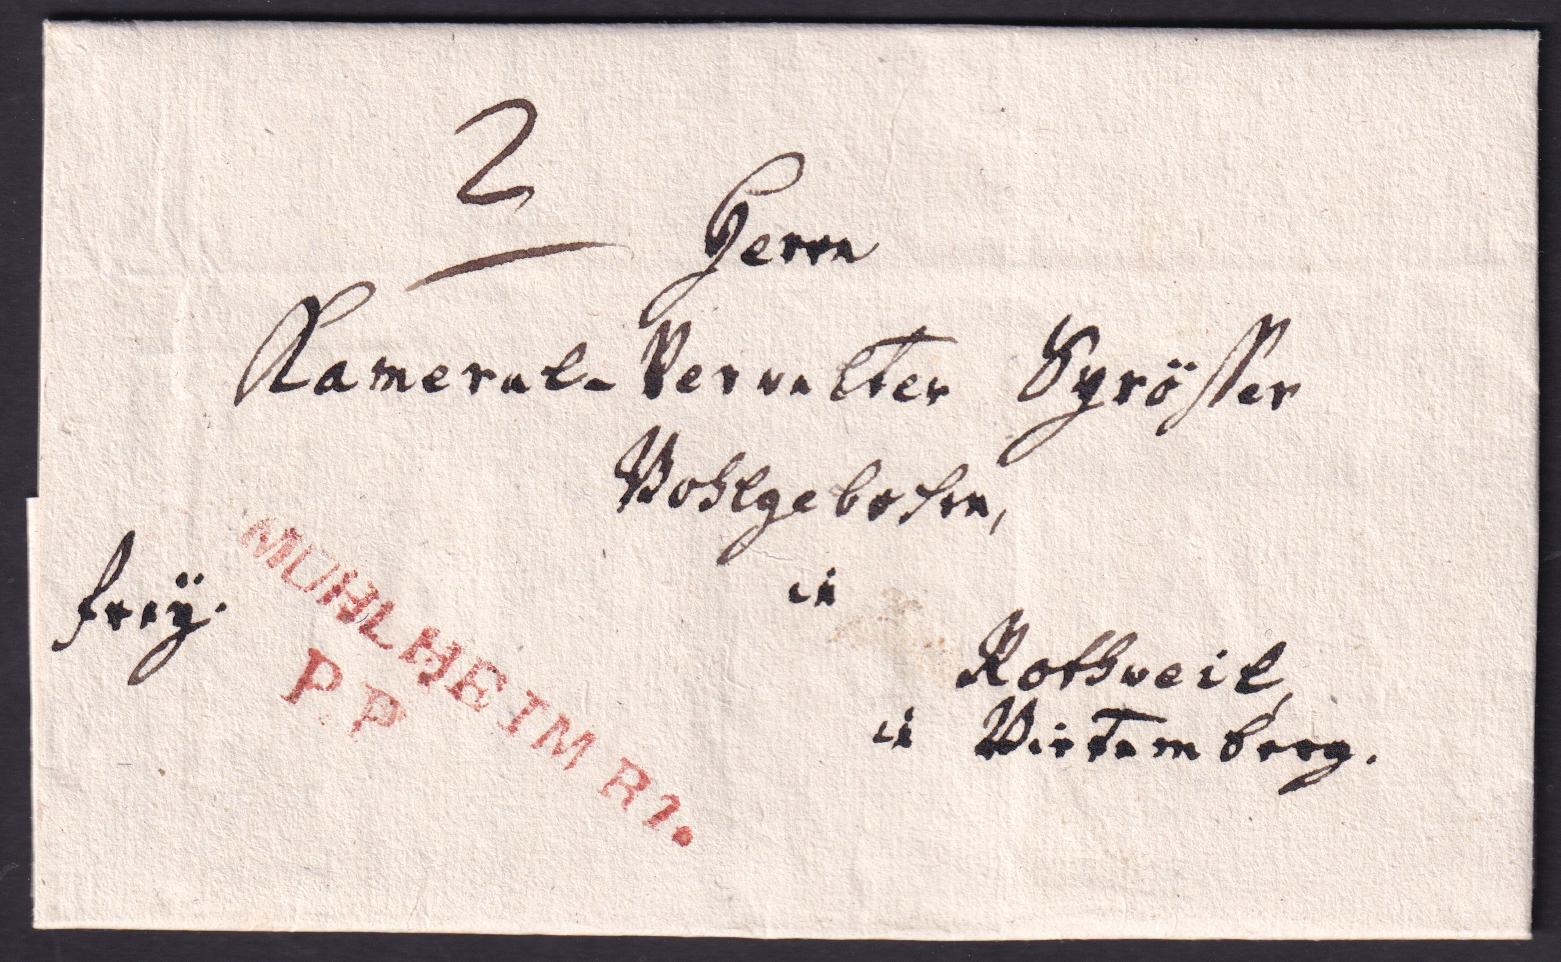 2
Herrn
Kameral-Verwalter
Wohlgeboren,
in
Rothweil,
in Wirtemberg.
freÿ.
MUHLHEIM R1.
P.P